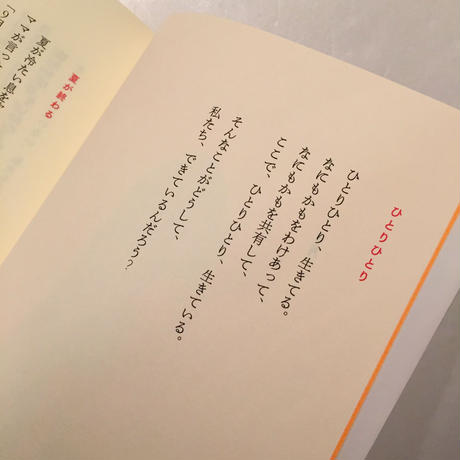 ひとりひとり
ひとりひとり、生きてる。
なにもかもをわけあって、
なにもかもを共有して、
ここで、ひとりひとり、生きている。
そんなことがどうして、
私たち、できているんだろう？
夏が終わる
夏が冷たい息を
ママが言って
「9月